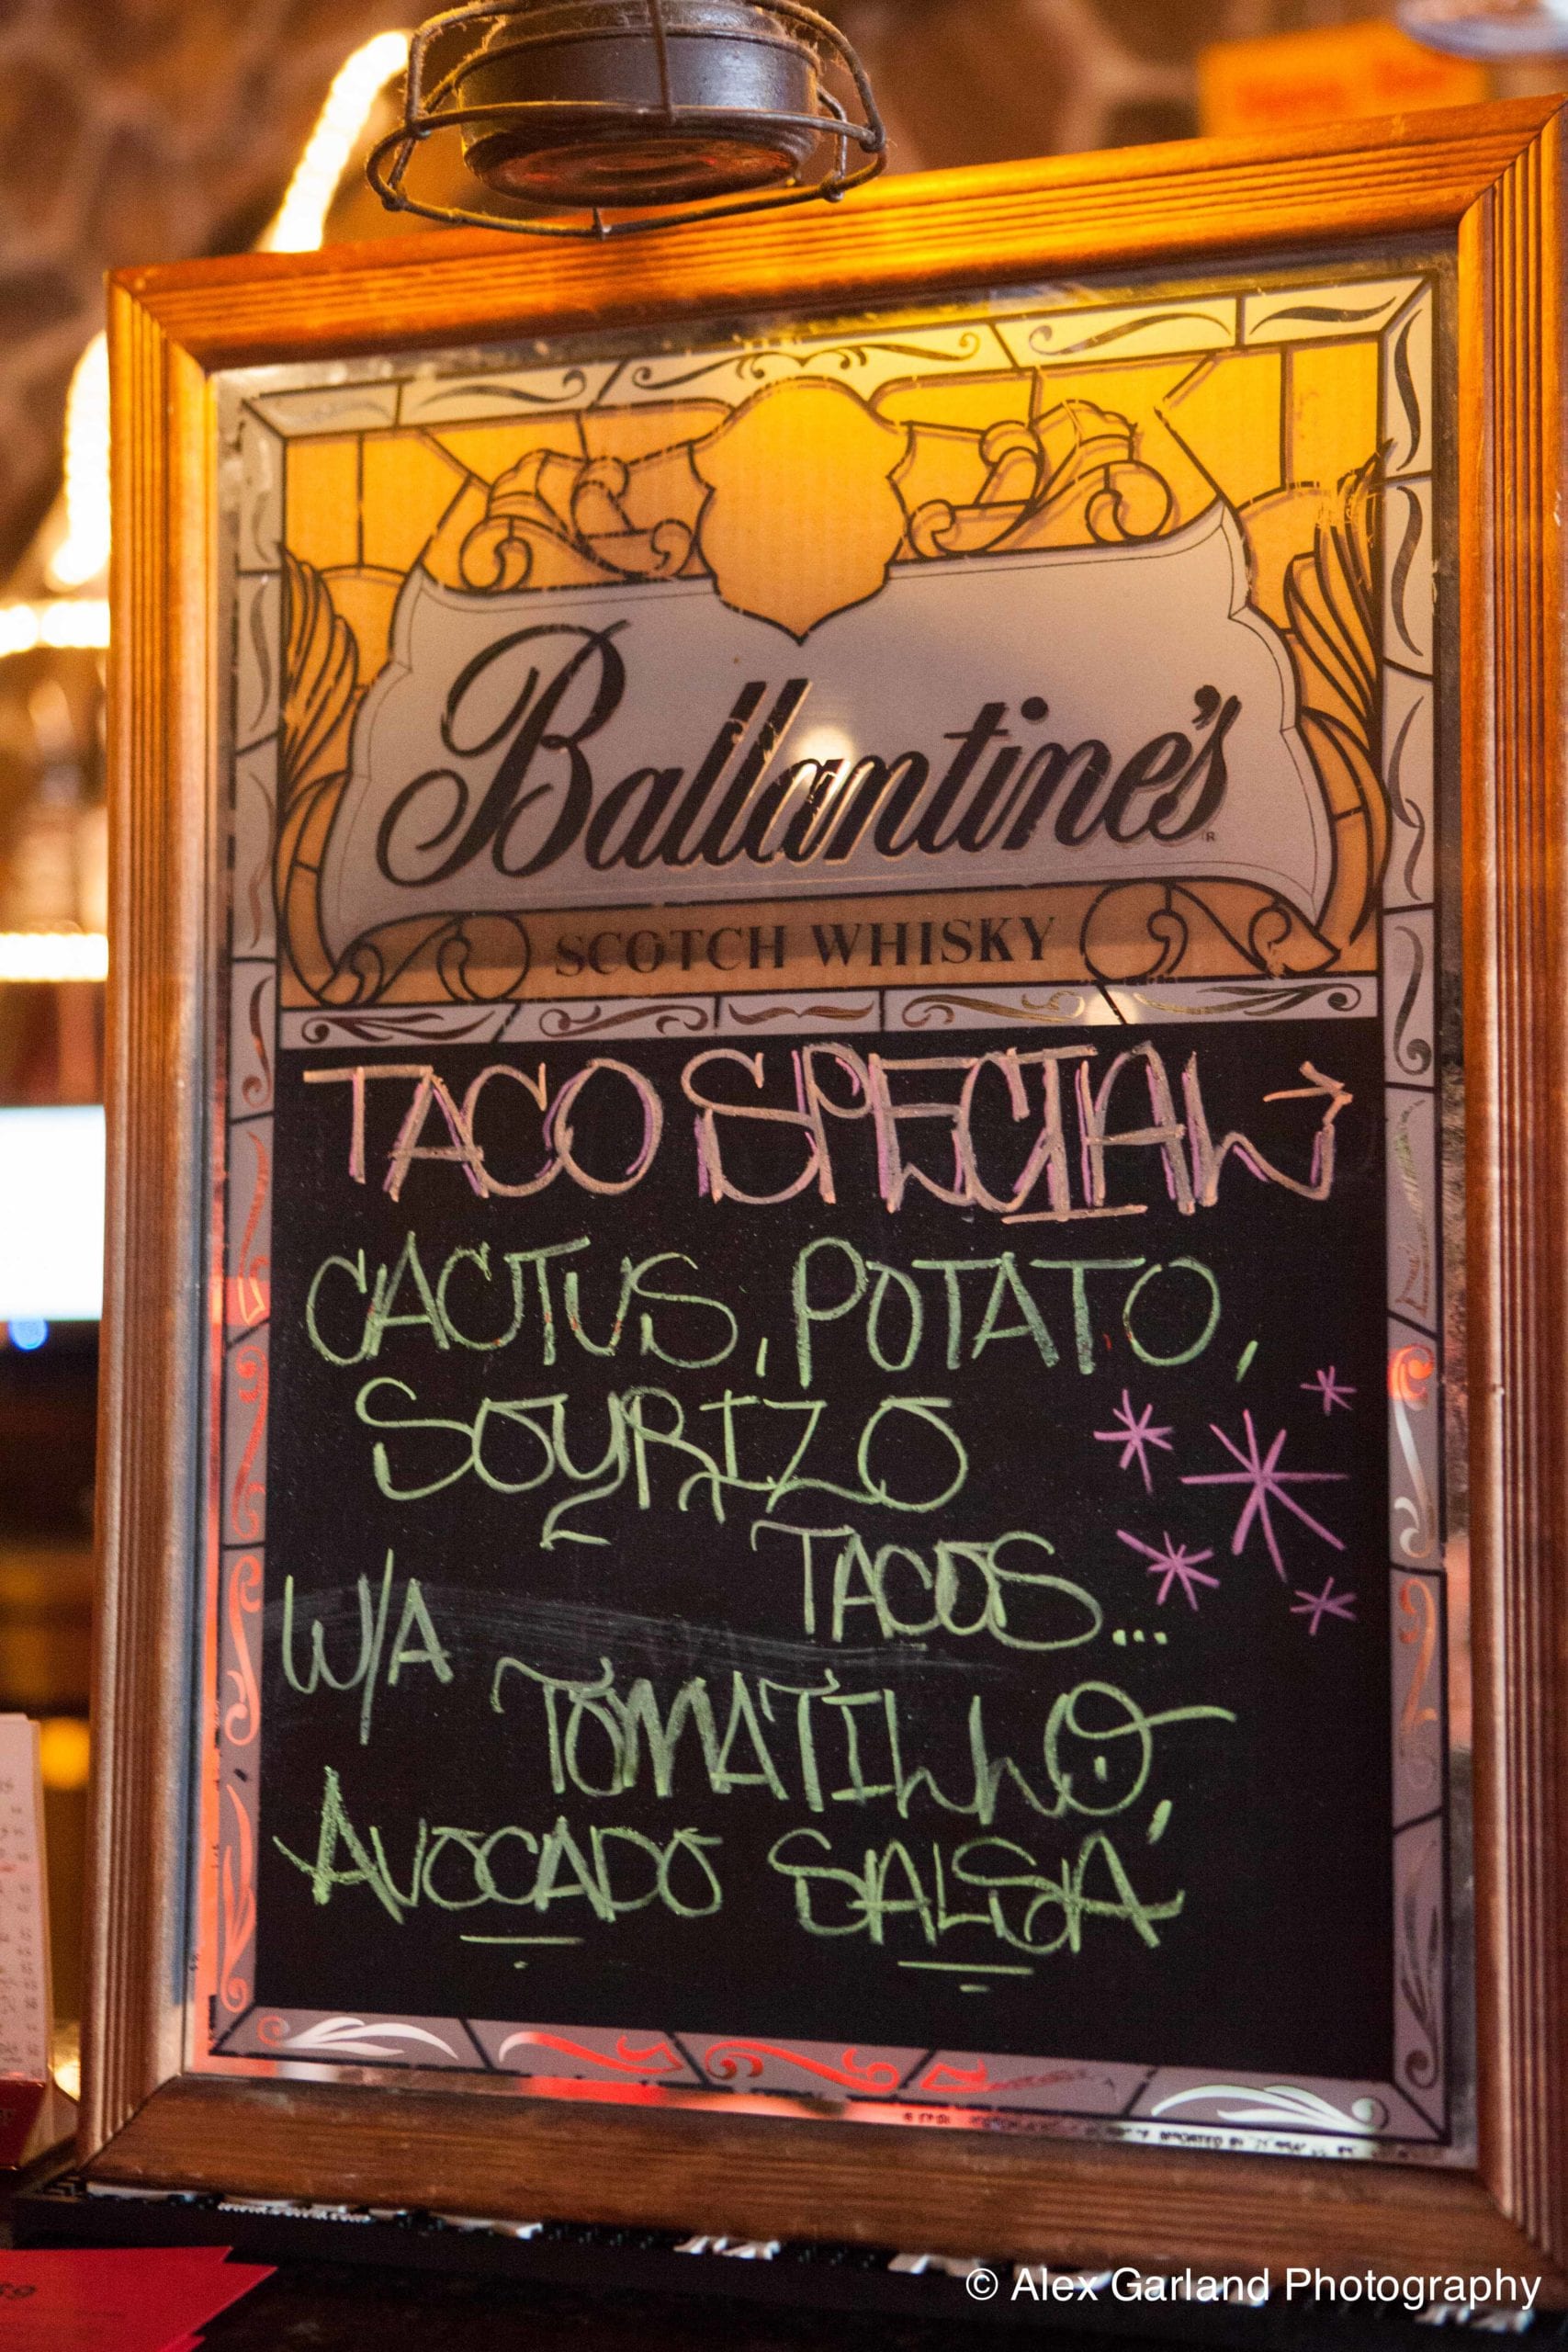 Ballantine's
SCOTCH WHISKY
TACO SPECIAL →
CACTUS, POTATO,
SOYRIZO
TACOS...
W/A
TOMATILLO,
AVOCADO SALSA
© Alex Garland Photography